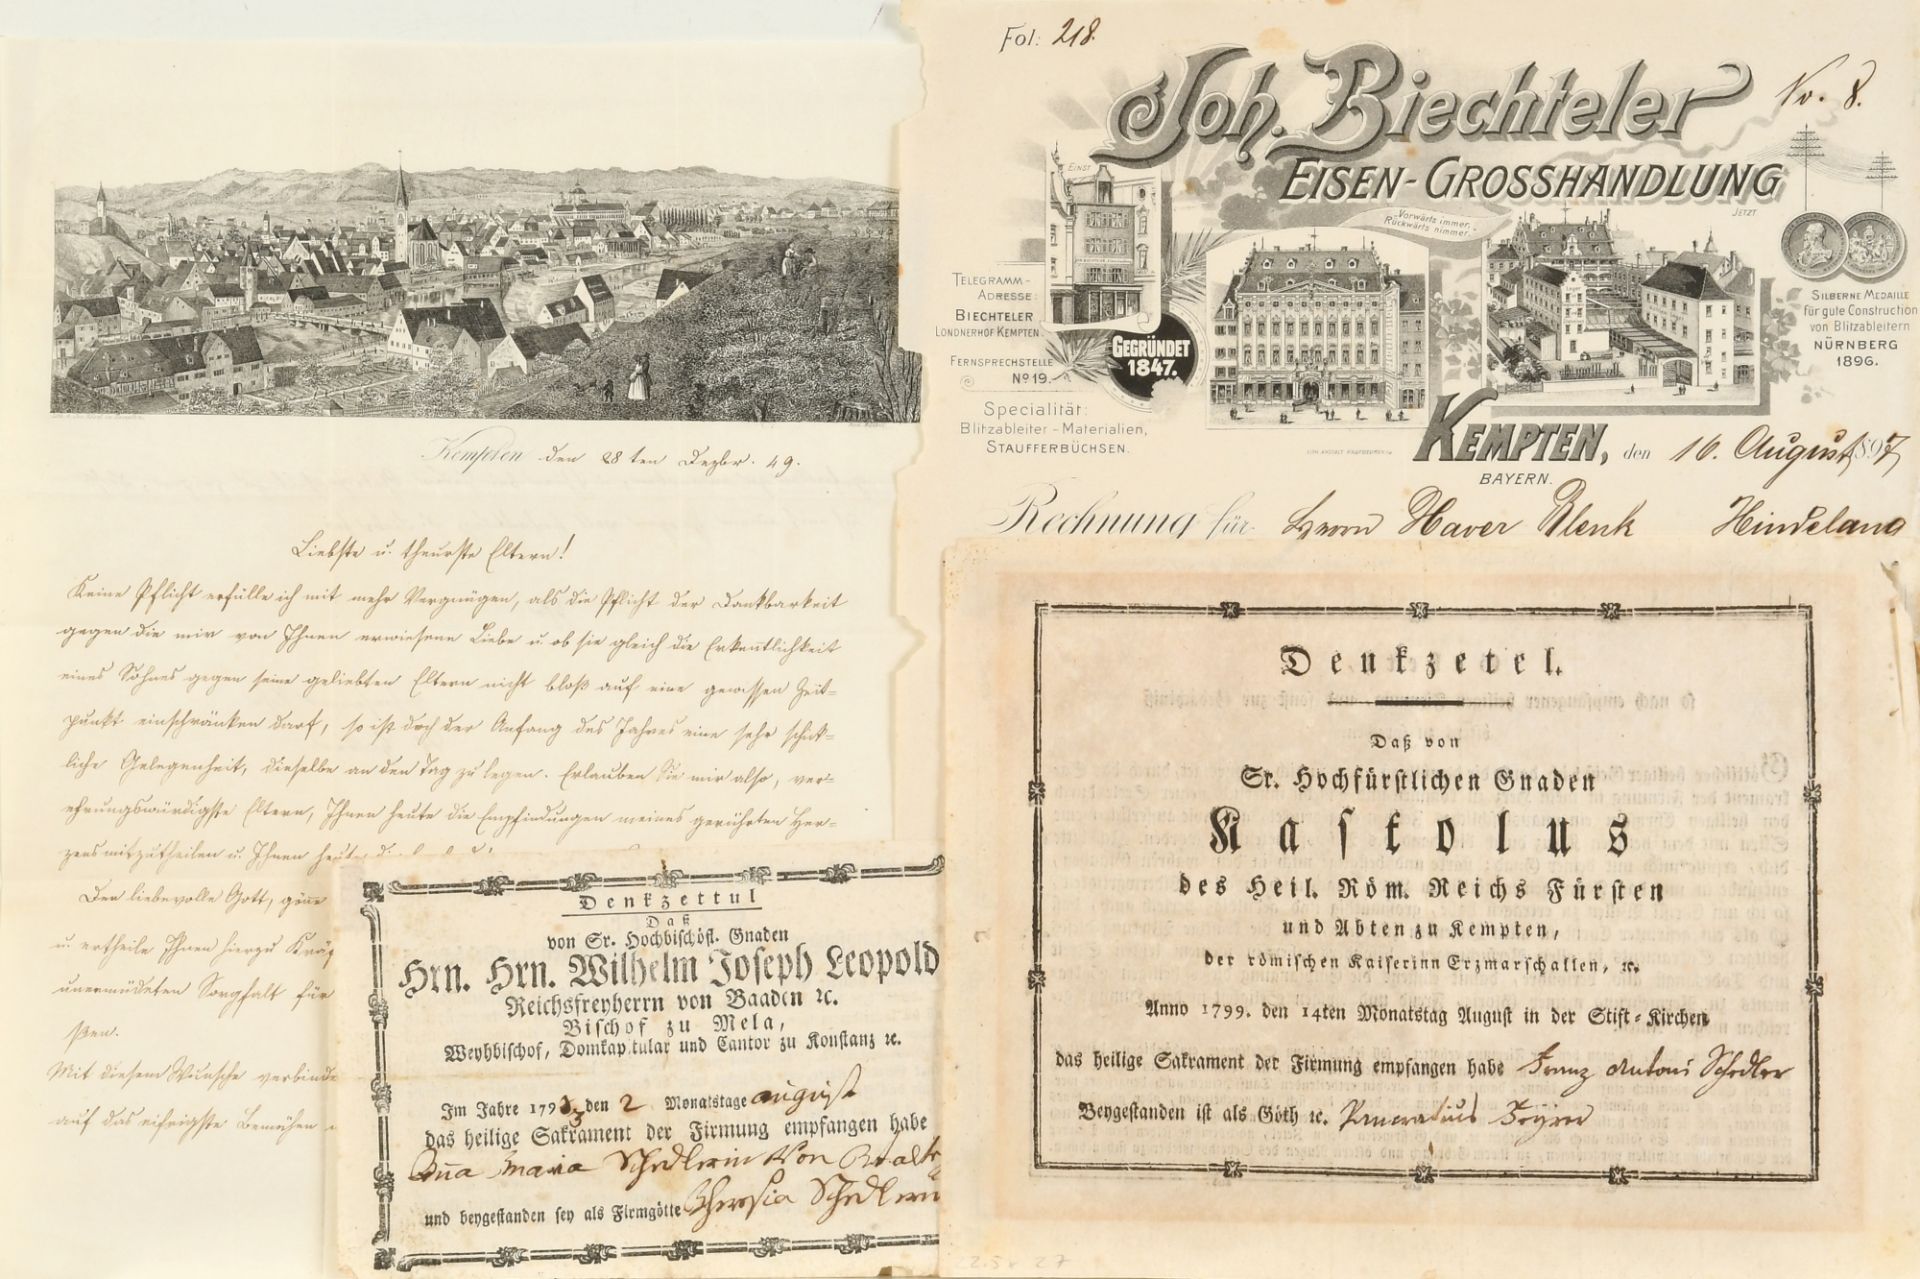 Kempten den 28ten Dezbr. 49.
Liebste u. theurste Eltern!
Keine Pflicht erfülle ich mit mehr Vergnügen, als die Pflicht der Dankbarkeit
gegen die mir von Ihnen erwiesene Liebe u. ob sie gleich die Erkentlichkeit
eines Sohnes gegen seine geliebten Eltern nicht bloß auf eine gewissen Zeit-
punkt einschränken darf, so ist doch der Anfang des Jahres eine sehr schik-
liche Gelegenheit, dieselbe an den Tag zu legen. Erlauben Sie mir also, ver-
ehrungswürdigste Eltern, Ihnen heute die Empfindungen meines gerührten Her-
zens mitzutheilen u. Ihnen heute
Den liebevolle Gott, gönne
u. ertheile Ihnen hierzu
unermüdeten Sorgfalt für
ßen.
Mit diesem Wunsche verbinde
auf das eifrigste Bemühen
Fol: 218.
No. 8.
Joh. Biechteler
EISEN-GROSSHANDLUNG
EINST
JETZT
Vorwärts immer,
Rückwärts nimmer.
TELEGRAMM-
ADRESSE:
BIECHTELER
LONDNERHOF KEMPTEN
FERNSPRECHSTELLE
No 19.
GEGRÜNDET
1847.
Specialität:
Blitzableiter-Materialien,
STAUFFERBÜCHSEN.
SILBERNE MEDAILLE
für gute Construction
von Blitzableitern
NÜRNBERG
1896.
KEMPTEN, den 16. August 1897
BAYERN.
Rechnung für Herrn Xaver Blenk Hindelang
Denkzettul
Daß
von Sr. Hochbischöfl. Gnaden
Hrn. Hrn. Wilhelm Joseph Leopold
Reichsfreyherrn von Baaden ec.
Bischof zu Mela,
Weyhbischof, Domkapitular und Cantor zu Konstanz ec.
Im Jahre 1793 den 2 Monatstage august
das heilige Sakrament der Firmung empfangen habe
Anna Maria Schedlerin Von
und beygestanden sey als Firmgötte Theresia Schedlerin
Denkzetel.
Daß von
Sr. Hochfürstlichen Gnaden
Kastolus
des Heil. Röm. Reichs Fürsten
und Abten zu Kempten,
der römischen Kaiserinn Erzmarschallen, ec.
Anno 1799. den 14ten Monatstag August in der Stift-Kirchen
das heilige Sakrament der Firmung empfangen habe Franz Antoni Schedler
Beygestanden ist als Göth ec. Pancratius
22.5 x 27